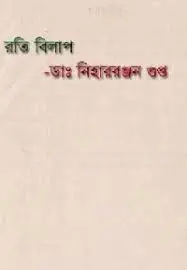 রতি বিলাপ
-ডাঃ নিহাররঞ্জন গুপ্ত